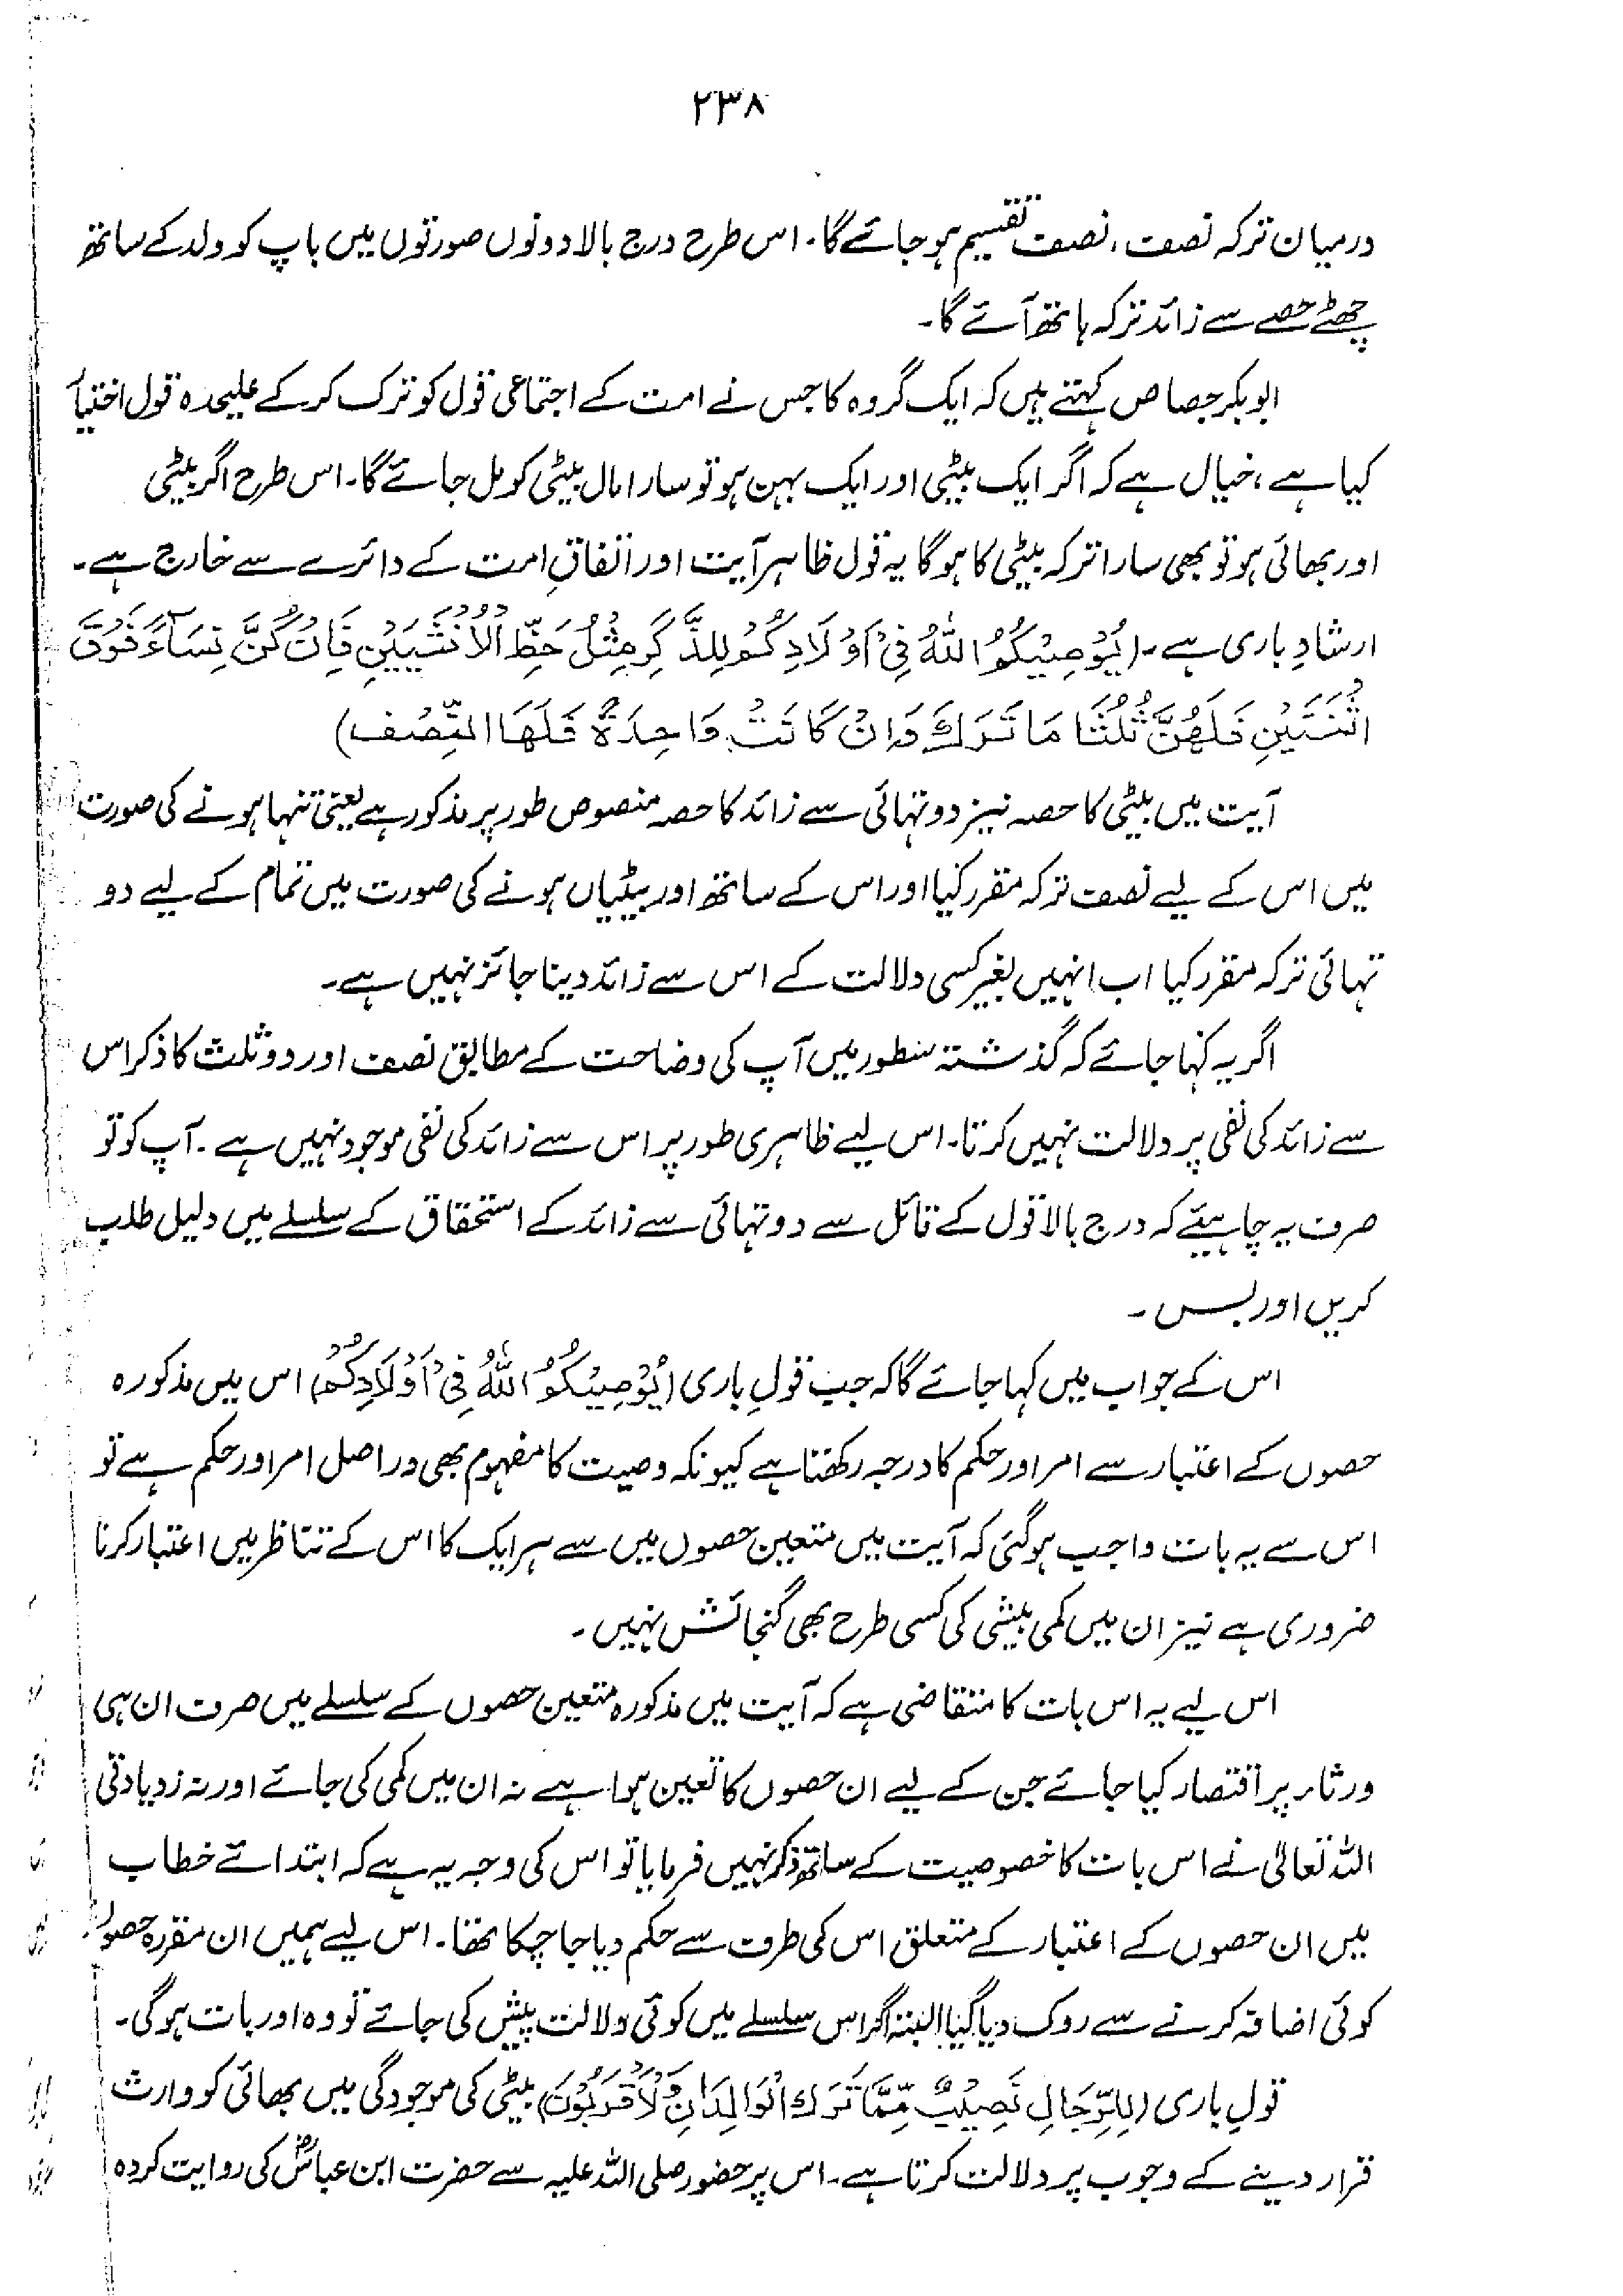 ۲۳۸
درمیان ترکہ نصف، نصف تقسیم ہو جائے گا۔ اس طرح درج بالا دونوں صورتوں میں باپ کو ولد کے ساتھ
چھٹے حصے سے زائد ترکہ ہاتھ آئے گا۔
ابوبکر جصاص کہتے ہیں کہ ایک گروہ کا جس نے امت کے اجتماعی قول کو ترک کر کے علیحدہ قول اختیار
کیا ہے، خیال ہے کہ اگر ایک بیٹی اور ایک بہن ہو تو سارا مال بیٹی کو مل جائے گا۔ اس طرح اگر بیٹی
اور بھائی ہو تو بھی سارا ترکہ بیٹی کا ہوگا یہ قول ظاہر آیت اور اتفاقِ امت کے دائرے سے خارج ہے۔
ارشادِ باری ہے۔ (یُوْصِیْکُمُ اللّٰہُ فِیْ اَوْلَادِکُمْ لِلذَّکَرِ مِثْلُ حَظِّ الْاُنْثَیَیْنِ فَاِنْ کُنَّ نِسَآءً فَوْقَ
اثْنَتَیْنِ فَلَھُنَّ ثُلُثَا مَا تَرَکَ وَاِنْ کَانَتْ وَاحِدَۃً فَلَھَا النِّصْف)
آیت میں بیٹی کا حصہ نیز دو تہائی سے زائد کا حصہ منصوص طور پر مذکور ہے یعنی تنہا ہونے کی صورت
میں اس کے لیے نصف ترکہ مقرر کیا اور اس کے ساتھ اور بیٹیاں ہونے کی صورت میں تمام کے لیے دو
تہائی ترکہ مقرر کیا اب انہیں بغیر کسی دلالت کے اس سے زائد دینا جائز نہیں ہے۔
اگر یہ کہا جائے کہ گذشتہ سطور میں آپ کی وضاحت کے مطابق نصف اور دو ثلث کا ذکر اس
سے زائد کی نفی پر دلالت نہیں کرتا۔ اس لیے ظاہری طور پر اس سے زائد کی نفی موجود نہیں ہے۔ آپ کو تو
صرف یہ چاہیئے کہ درج بالا قول کے قائل سے دو تہائی سے زائد کے استحقاق کے سلسلے میں دلیل طلب
کریں اور بس۔
اس کے جواب میں کہا جائے گا کہ جب قولِ باری (یُوْصِیْکُمُ اللّٰہُ فِیْ اَوْلَادِکُمْ) اس میں مذکورہ
حصوں کے اعتبار سے امر اور حکم کا درجہ رکھتا ہے کیونکہ وصیت کا مفہوم بھی دراصل امر اور حکم ہے تو
اس سے یہ بات واجب ہوگئی کہ آیت میں متعین حصوں میں سے ہر ایک کا اس کے تناظر میں اعتبار کرنا
ضروری ہے نیز ان میں کمی بیشی کی کسی طرح بھی گنجائش نہیں۔
اس لیے یہ اس بات کا متقاضی ہے کہ آیت میں مذکورہ متعین حصوں کے سلسلے میں صرف ان ہی
ورثاء پر اقتصار کیا جائے جن کے لیے ان حصوں کا تعین ہوا ہے نہ ان میں کمی کی جائے اور نہ زیادتی
اللہ تعالیٰ نے اس بات کا خصوصیت کے ساتھ ذکر نہیں فرمایا تو اس کی وجہ یہ ہے کہ ابتدائے خطاب
میں ان حصوں کے اعتبار کے متعلق اس کی طرف سے حکم دیا جا چکا تھا۔ اس لیے ہمیں ان مقررہ حصوں
کوئی اضافہ کرنے سے روک دیا گیا البتہ اگر اس سلسلے میں کوئی دلالت پیش کی جائے تو وہ اور بات ہوگی۔
قولِ باری (لِلرِّجَالِ نَصِیْبٌ مِّمَّا تَرَکَ الْوَالِدَانِ وَالْاَقْرَبُوْنَ) بیٹی کی موجودگی میں بھائی کو وارث
قرار دینے کے وجوب پر دلالت کرتا ہے۔ اس پر حضور صلی اللہ علیہ سے حضرت ابن عباسؓ کی روایت کردہ